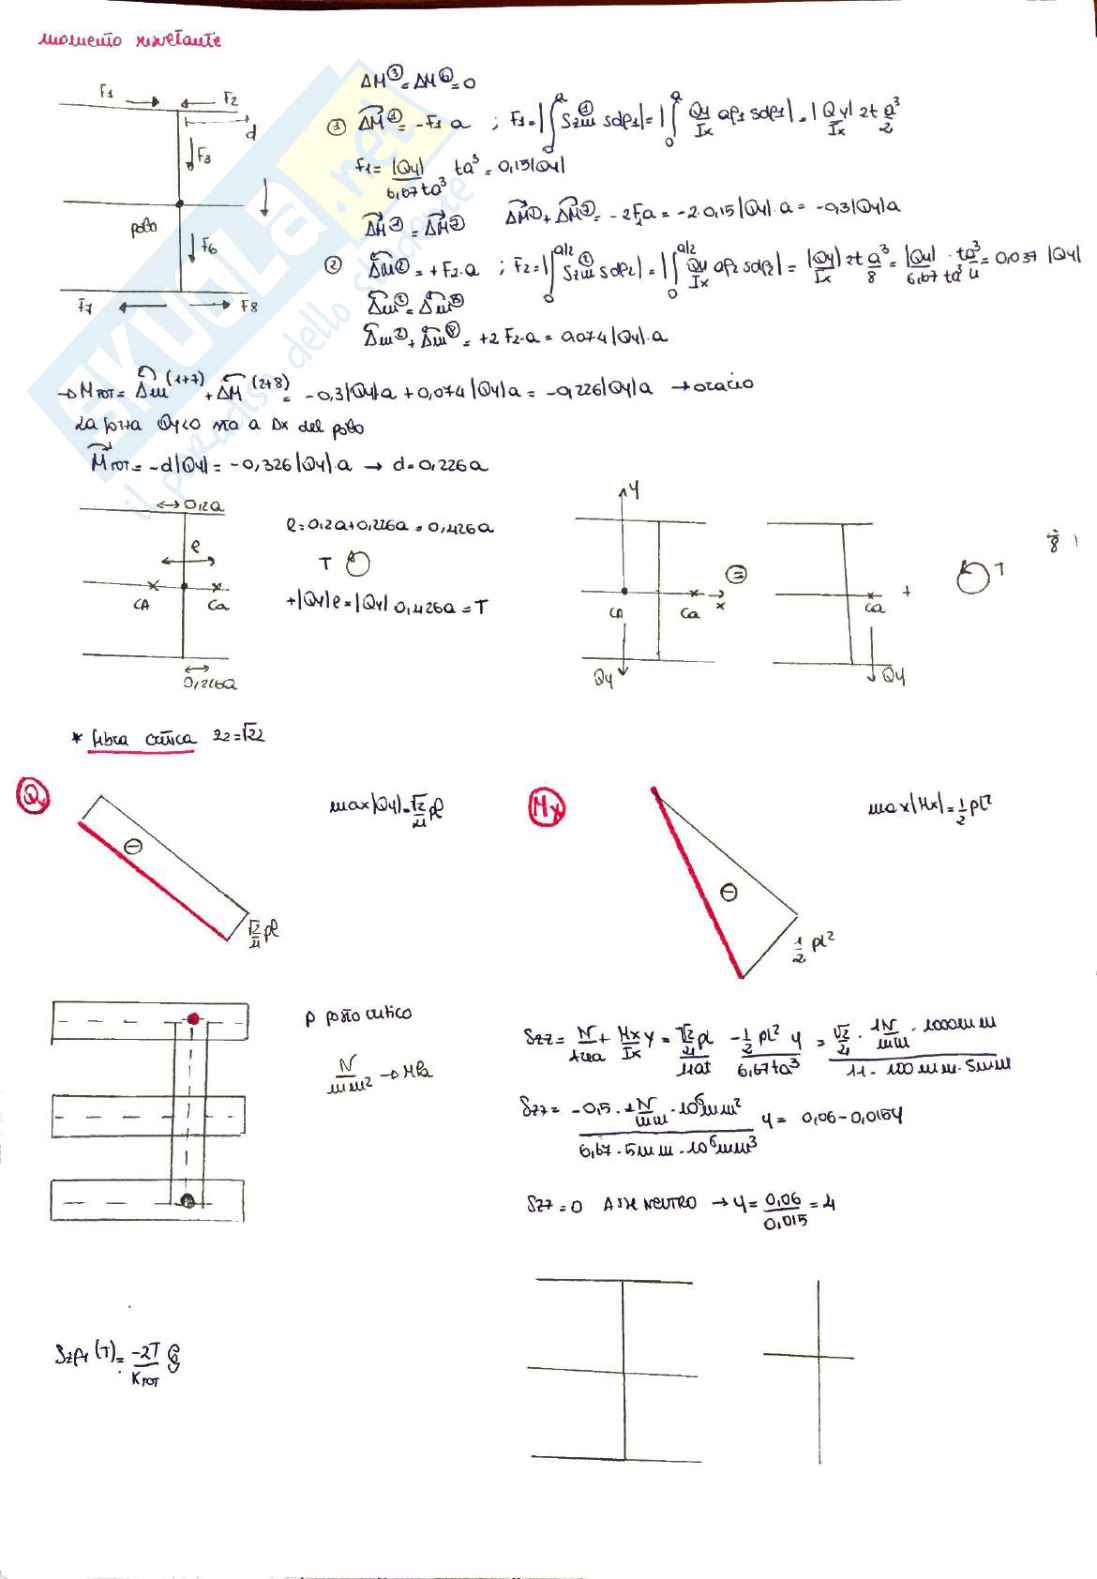 momento risultante
F1 F2
d
F3
polo
F6
F7 F8
ΔM③ = ΔM⑥ = 0
① ΔM① = -F1 a ; F1 = |∫₀ᵃ Szm① sdρ1| = |∫₀ᵃ Qy/Ix aρ1 sdρ1| = |Qy|/Ix 2t a³/2
F1 = |Qy|/6,67ta³ ta³ = 0,15|Qy|
ΔM① = ΔM⑦ ΔM① + ΔM⑦ = -2F1a = -2·0,15|Qy|·a = -0,3|Qy|a
② Δm② = +F2·a ; F2 = |∫₀^a/2 Szm② sdρ2| = |∫₀^a/2 Qy/Ix aρ2 sdρ2| = |Qy|/Ix 2t a³/8 = |Qy|/6,67ta³ · ta³/4 = 0,037 |Qy|
Δm② = Δm⑧
Δm② + Δm⑧ = +2F2·a = 0,074|Qy|·a
→ MTOT = Δm (1+7) + ΔM (2+8) = -0,3|Qy|a + 0,074|Qy|a = -0,226|Qy|a → orario
La forza Qy<0 sta a Dx del polo
MTOT = -d|Qy| = -0,326|Qy|·a → d=0,226a
0,2a
e
CA Ca
0,226a
e=0,2a+0,226a = 0,426a
T
+|Qy|e = |Qy| 0,426a = T
Y
CA Ca x
Qy
=
Ca
Qy
+
T
8
* fibra critica 22=√22
Q
⊖
√2/4 pl
max|Qy| = √2/4 pl
Mx
⊖
1/2 pl²
max|Mx| = 1/2 pl²
P posto critico
N/mm² → MPa
Szz = N/Area + Mx/Ix y = √2/4 pl / 11at -1/2 pl² y / 6,67ta³ = √2/4 · 1N/mm · 1000mm / 11 · 100mm · 5mm
Szz = -0,5 · 1N/mm · 10⁶mm² / 6,67 · 5mm · 10⁶mm³ y = 0,06-0,015y
Szz = 0 ASSE NEUTRO → y = 0,06/0,015 = 4
Szρi (T) = -2T/KTOT